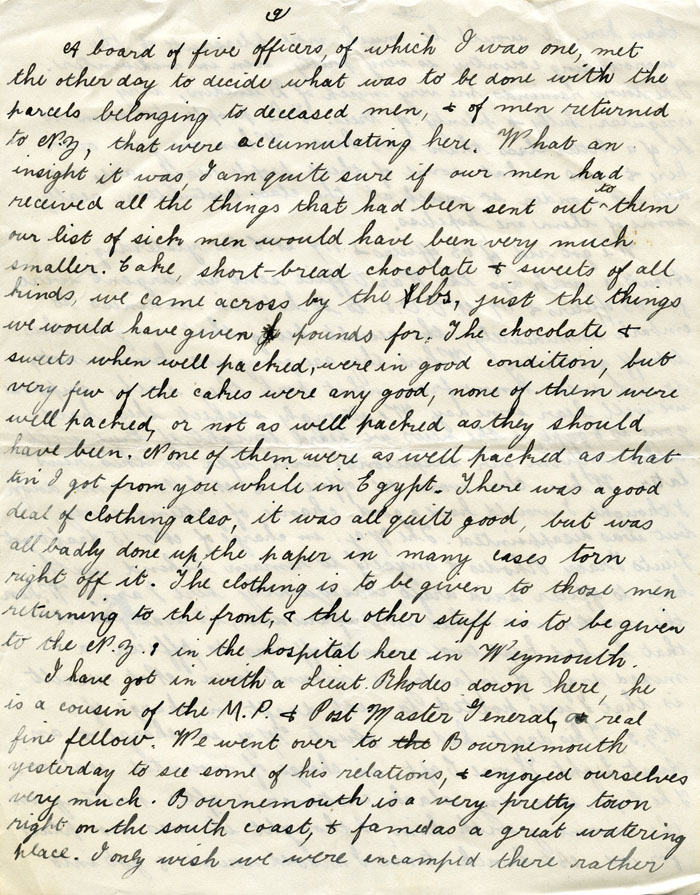 2
A board of five officers, of which I was one, met
the other day to decide what was to be done with the
parcels belonging to deceased men, & of men returned
to N.Z, that were accumulating here. What an
insight it was, I am quite sure if our men had
received all the things that had been sent out to them
our list of sick men would have been very much
smaller. Cake, short-bread chocolate & sweets of all
kinds, we came across by the lbs, just the things
we would have given pounds for. The chocolate &
sweets when well packed, were in good condition, but
very few of the cakes were any good, none of them were
well packed, or not as well packed as they should
have been. None of them were as well packed as that
tin I got from you while in Egypt. There was a good
deal of clothing also, it was all quite good, but was
all badly done up, the paper in many cases torn
right off it. The clothing is to be given to those men
returning to the front, & the other stuff is to be given
to the N.Z.s in the hospital here in Weymouth.
I have got in with a Lieut. Rhodes down here, he
is a cousin of the M.P & Post Master General, a real
fine fellow. We went over to the Bournemouth
yesterday to see some of his relations, & enjoyed ourselves
very much. Bournemouth is a very pretty town
right on the south coast, & famed as a great watering
place. I only wish we were incamped there rather